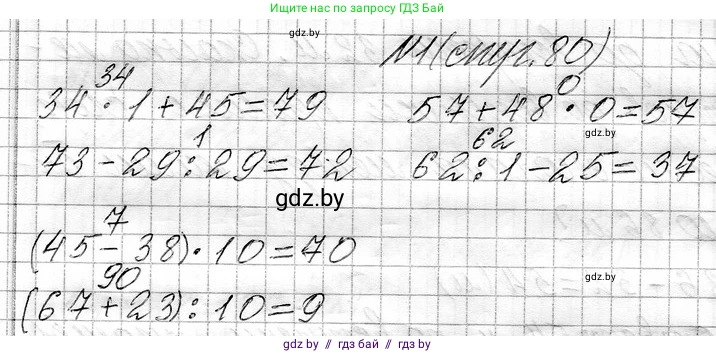 Ищите нас по запросу ГДЗ Бай
gdz.by
№1(стр.80)
34
34 · 1 + 45 = 79
0
57 + 48 · 0 = 57
gdz.by
1
73 - 29 : 29 = 72
62
62 : 1 - 25 = 37
gdz.by
7
(45 - 38) · 10 = 70
90
(67 + 23) : 10 = 9
gdz.by
gdz.by // гдз бай // gdz.by // гдз бай